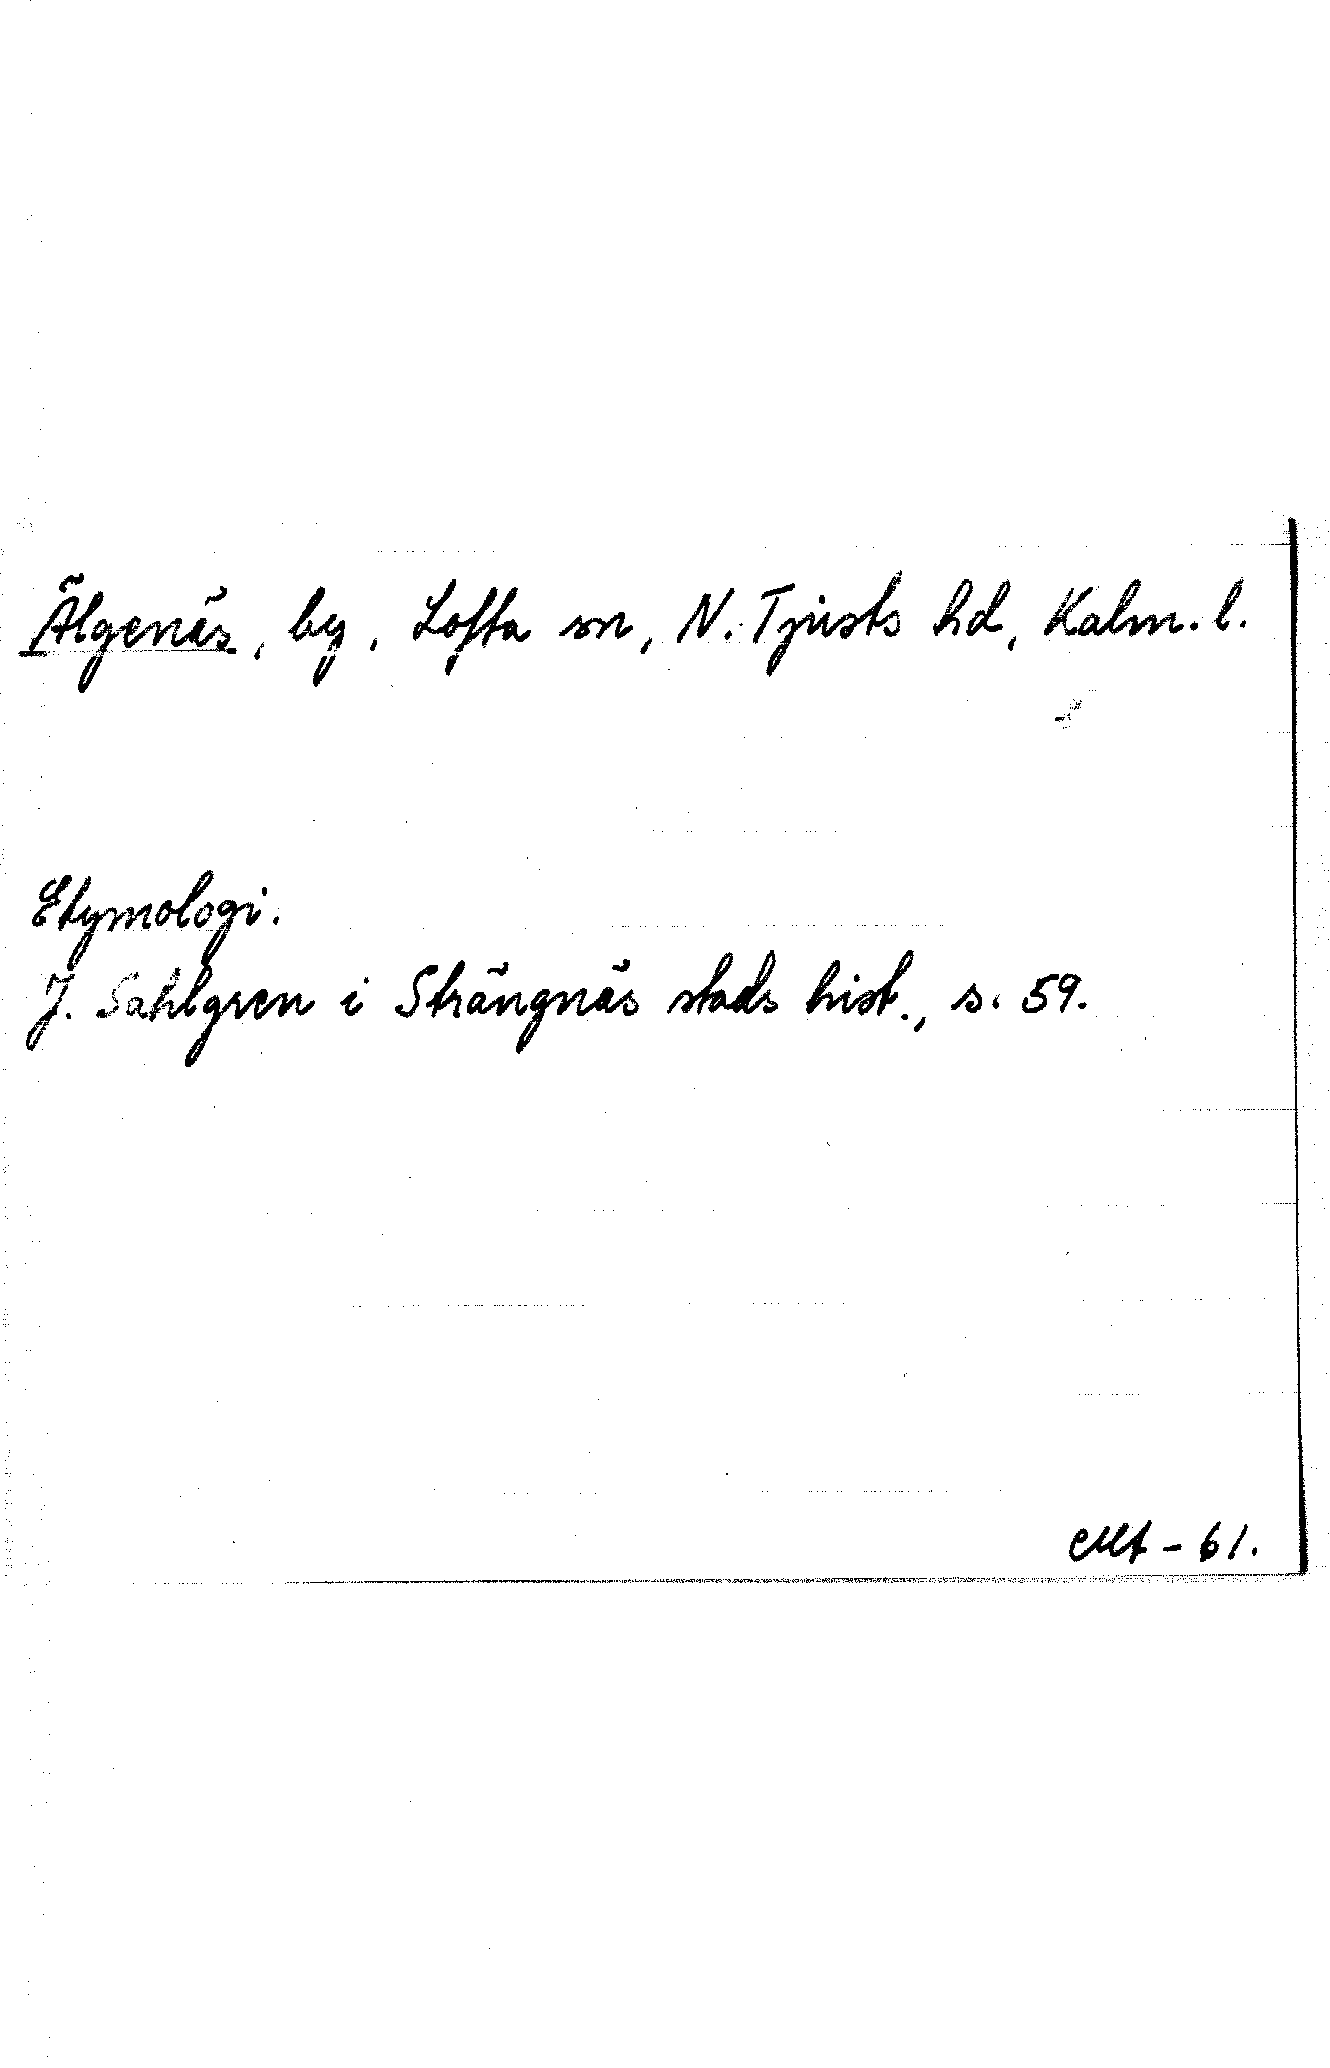 Älgenäs, by, Lofta sn, N. Tjusts hd, Kalm. l.
Etymologi.
J. Sahlgren i Strängnäs stads hist., s. 59.
-61.